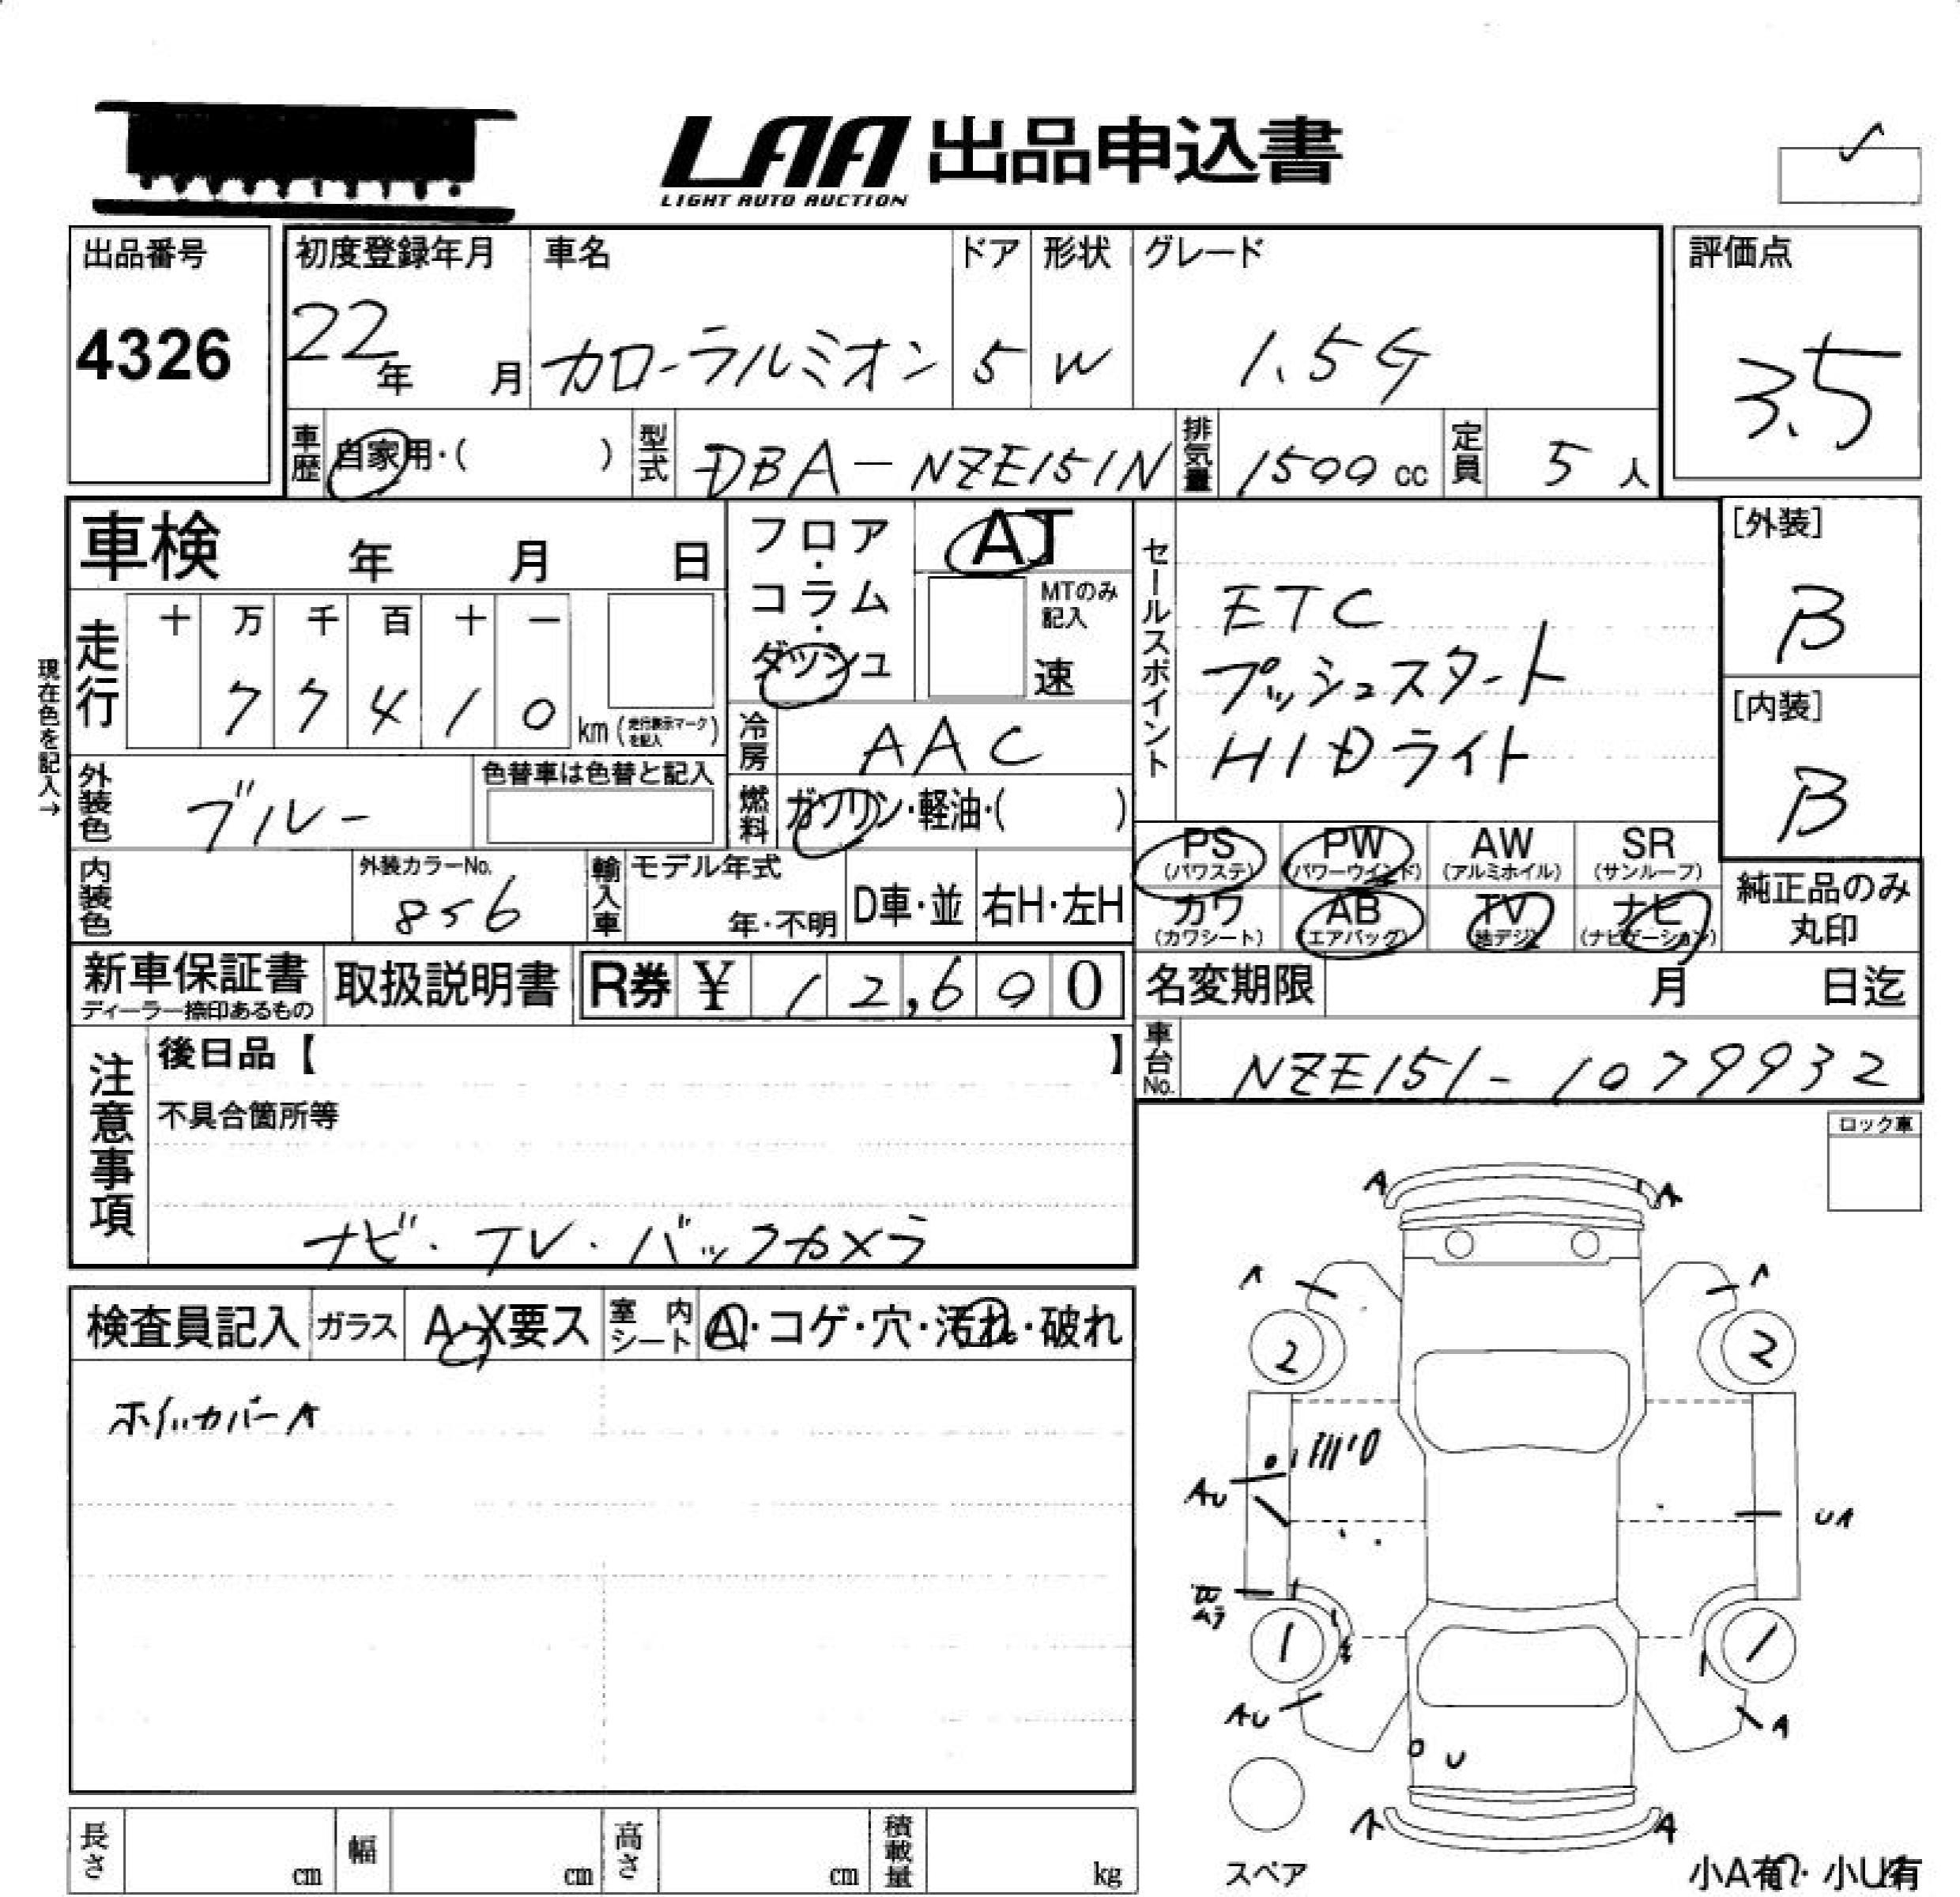 LAA 出品申込書
LIGHT AUTO AUCTION
出品番号
4326
初度登録年月
22年 月
車名
カローラルミオン
ドア
5
形状
W
グレード
1.5G
評価点
3.5
車歴 自家用・( )
型式 DBA-NZE151N
排気量 1500 cc
定員 5 人
車検 年 月 日
フロア・コラム・ダッシュ
AT
MTのみ記入
速
セールスポイント
ETC
プッシュスタート
HIDライト
[外装]
B
[内装]
B
現在色を記入→
走行
十 万 千 百 十 一
7 7 4 1 0 km (走行表示マークを記入)
冷房 AAC
外装色 ブルー
色替車は色替と記入
燃料 ガソリン・軽油・( )
内装色
外装カラーNo.
856
輸入車 モデル年式
年・不明
D車・並
右H・左H
PS (パワステ)
PW (パワーウインド)
AW (アルミホイル)
SR (サンルーフ)
カワ (カワシート)
AB (エアバッグ)
TV (地デジ)
ナビ (ナビゲーション)
純正品のみ丸印
新車保証書
ディーラー捺印あるもの
取扱説明書
R券 ¥ 12,690
名変期限 月 日迄
車台No. NZE151-1079932
注意事項
後日品【 】
不具合箇所等
ナビ・TV・バックカメラ
ロック車
検査員記入
ガラス A・X要ス
室内シート A・コゲ・穴・汚れ・破れ
ホイルカバーA
A A
A A
2 2
AU
UA
1 1
AU
A
U
A A
スペア
小A有・小U有
長さ cm
幅 cm
高さ cm
積載量 kg